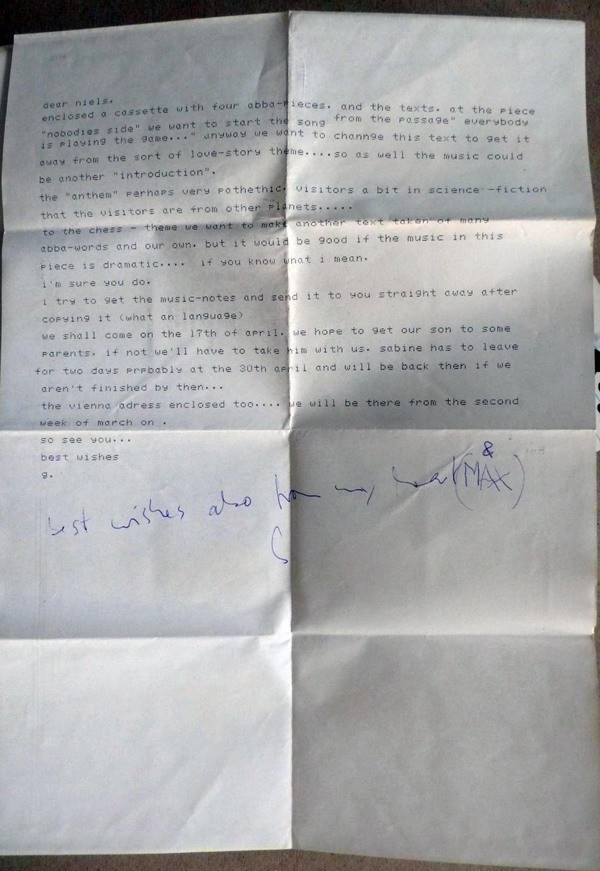 dear niels.
enclosed a cassette with four abba-pieces. and the texts. at the piece
"nobodies side" we want to start the song from the passage" everybody
is playing the game..." anyway we want to channge this text to get it
away from the sort of love-story theme....so as well the music could
be another "introduction".
the "anthem" perhaps very pathethic. visitors a bit in science -fiction
that the visitors are from other planets.....
to the chess - theme we want to make another text taken of many
abba-words and our own. but it would be good if the music in this
piece is dramatic.... if you know what i mean.
i'm sure you do.
i try to get the music-notes and send it to you straight away after
copying it (what an language)
we shall come on the 17th of april. we hope to get our son to some
parents. if not we'll have to take him with us. sabine has to leave
for two days prpbably at the 30th april and will be back then if we
aren't finished by then...
the vienna adress enclosed too.... we will be there from the second
week of march on .
so see you...
best wishes
g.
best wishes also from my heart (& MAX)
S